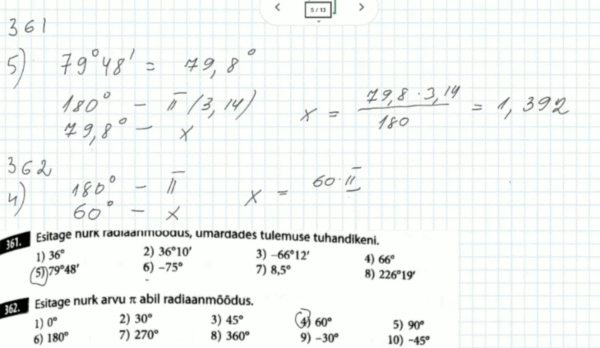 5 / 13
361
5) 79°48' = 79,8°
180° — π (3,14)
79,8° — x
x = 79,8 · 3,14 / 180 = 1,392
362
4) 180° — π
60° — x
x = 60 · π
361. Esitage nurk radiaanmõõdus, ümardades tulemuse tuhandikeni.
1) 36° 2) 36°10' 3) –66°12' 4) 66°
5) 79°48' 6) –75° 7) 8,5° 8) 226°19'
362. Esitage nurk arvu π abil radiaanmõõdus.
1) 0° 2) 30° 3) 45° 4) 60° 5) 90°
6) 180° 7) 270° 8) 360° 9) –30° 10) –45°